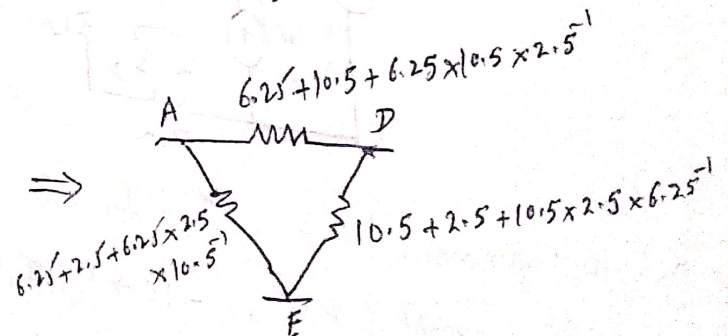 6.25+10.5+6.25×10.5×2.5⁻¹
A
D
⇒
6.25+2.5+6.25×2.5
×10.5⁻¹
10.5+2.5+10.5×2.5×6.25⁻¹
E